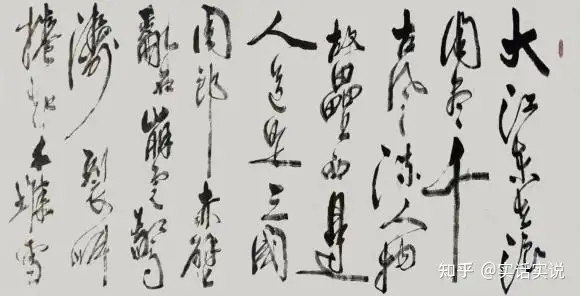 大江东去浪
淘盡千
古风流人物
故壘西邊
人道是三國
周郎赤壁
亂石崩雲驚
濤裂岸
捲起千堆雪
知乎 @实话实说